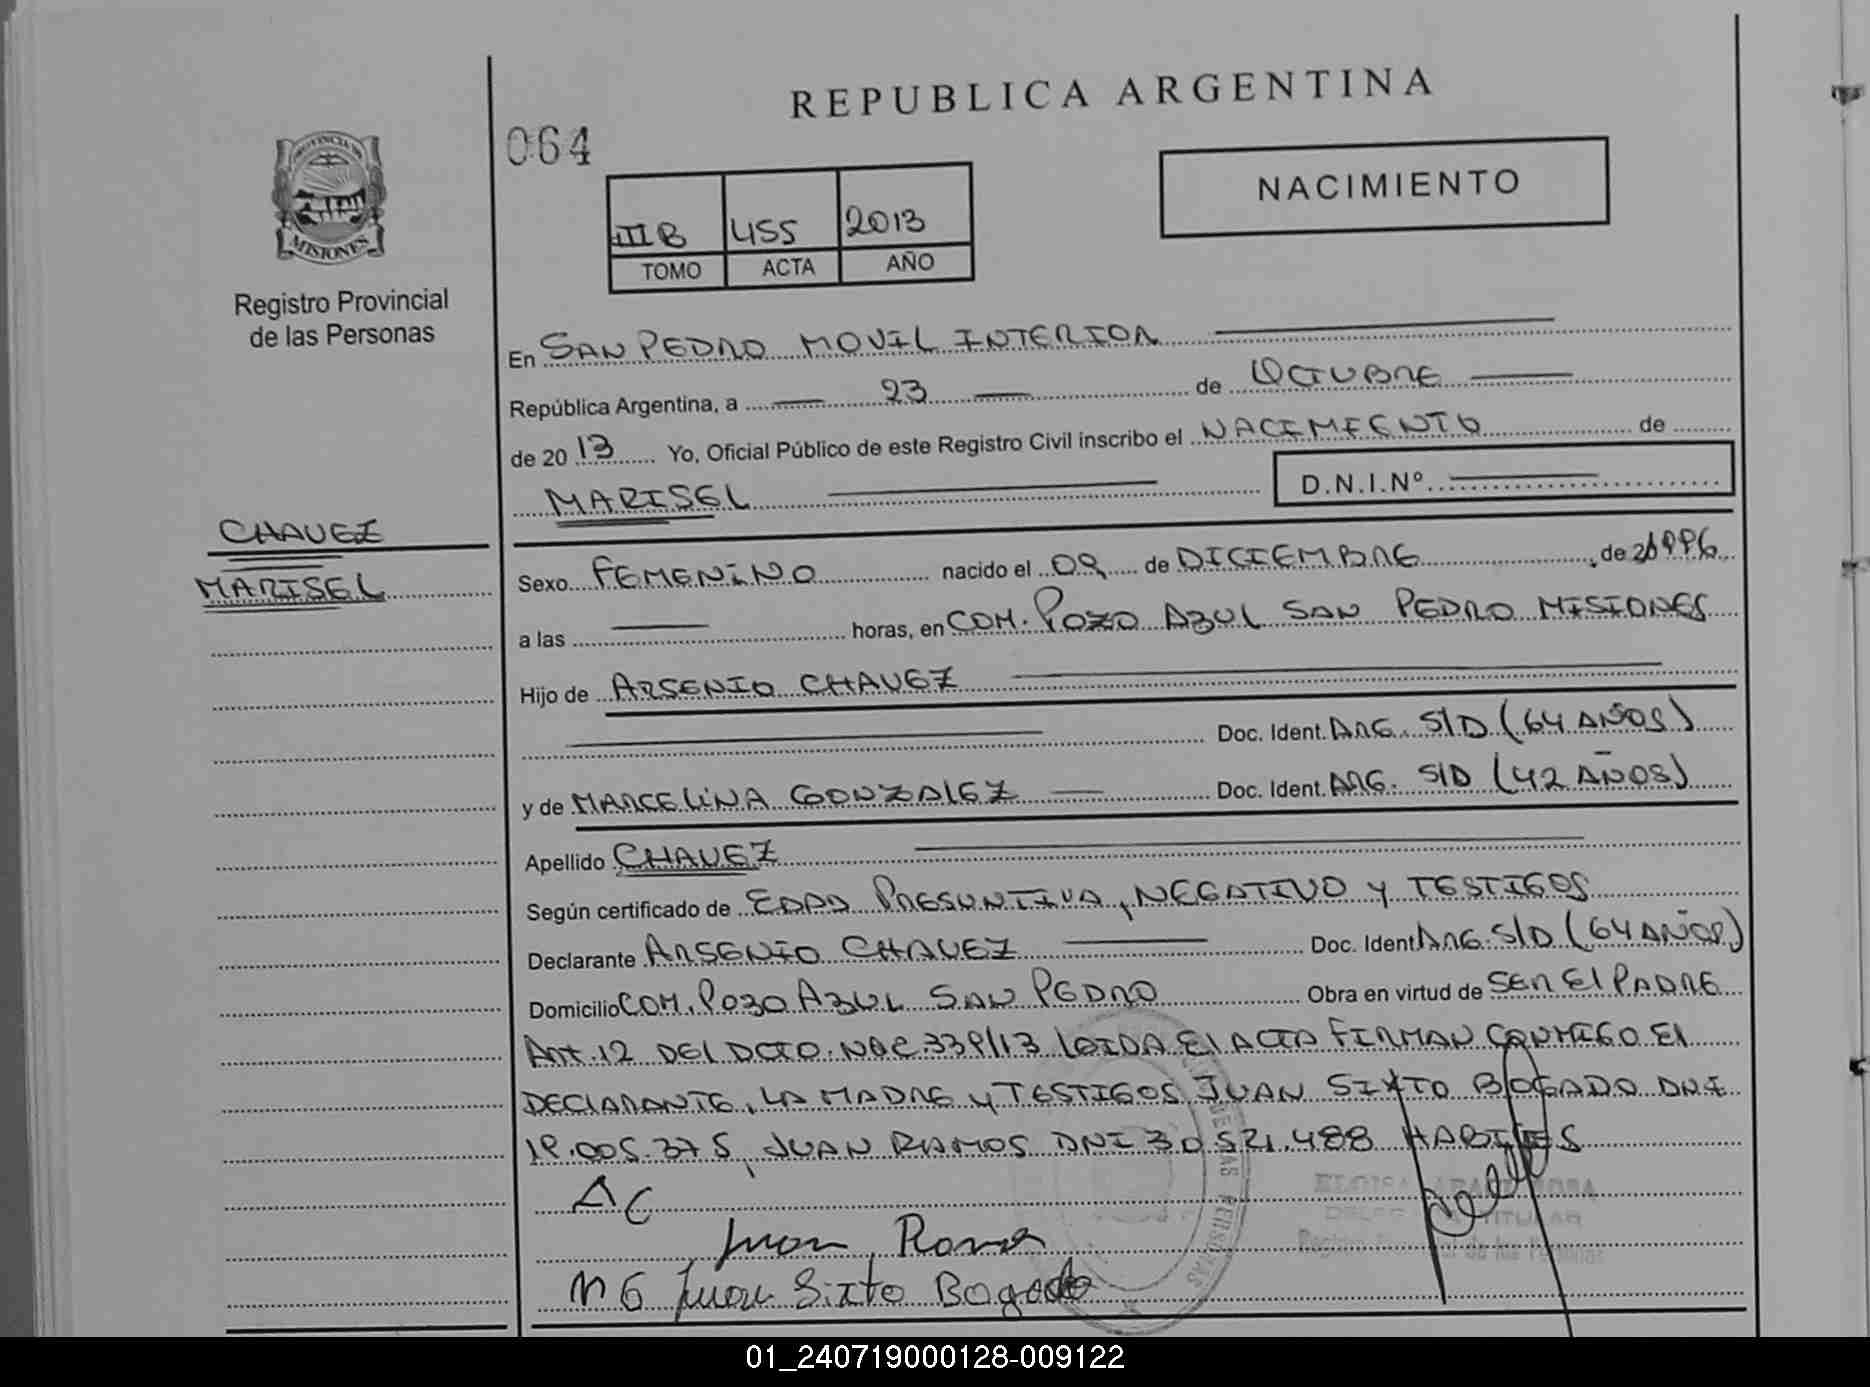 REPUBLICA ARGENTINA
064
NACIMIENTO
PROVINCIA DE
MISIONES
Registro Provincial
de las Personas
IIIB 455 2013
TOMO ACTA AÑO
En SAN PEDRO MOVIL INTERIOR
República Argentina, a 23 de OCTUBRE
de 2013 Yo, Oficial Público de este Registro Civil inscribo el NACIMIENTO de
MARISEL D.N.I.Nº
CHAVEZ
MARISEL
Sexo FEMENINO nacido el 09 de DICIEMBRE de 1996
a las horas, en COM. POZO AZUL SAN PEDRO MISIONES
Hijo de ARSENIO CHAVEZ
Doc. Ident. ARG. S/D (64 AÑOS)
y de MARCELINA GONZALEZ Doc. Ident. ARG. S/D (42 AÑOS)
Apellido CHAVEZ
Según certificado de EDAD PRESUNTIVA, NEGATIVO Y TESTIGOS
Declarante ARSENIO CHAVEZ Doc. Ident ARG. S/D (64 AÑOS)
Domicilio COM. POZO AZUL SAN PEDRO Obra en virtud de SER El PADRE
Art. 12 DEl DCTO. NAC. 339/13 LEIDA El ACTA FIRMAN CONMIGO El
DECLARANTE, LA MADRE Y TESTIGOS JUAN SIXTO BOGADO DNI
19.005.375, JUAN RAMOS DNI 30.521.488 HABILES
AC
Juan Ramos
MG Juan Sixto Bogado
TITULAR
Registro Provincial de las Personas
01_240719000128-009122